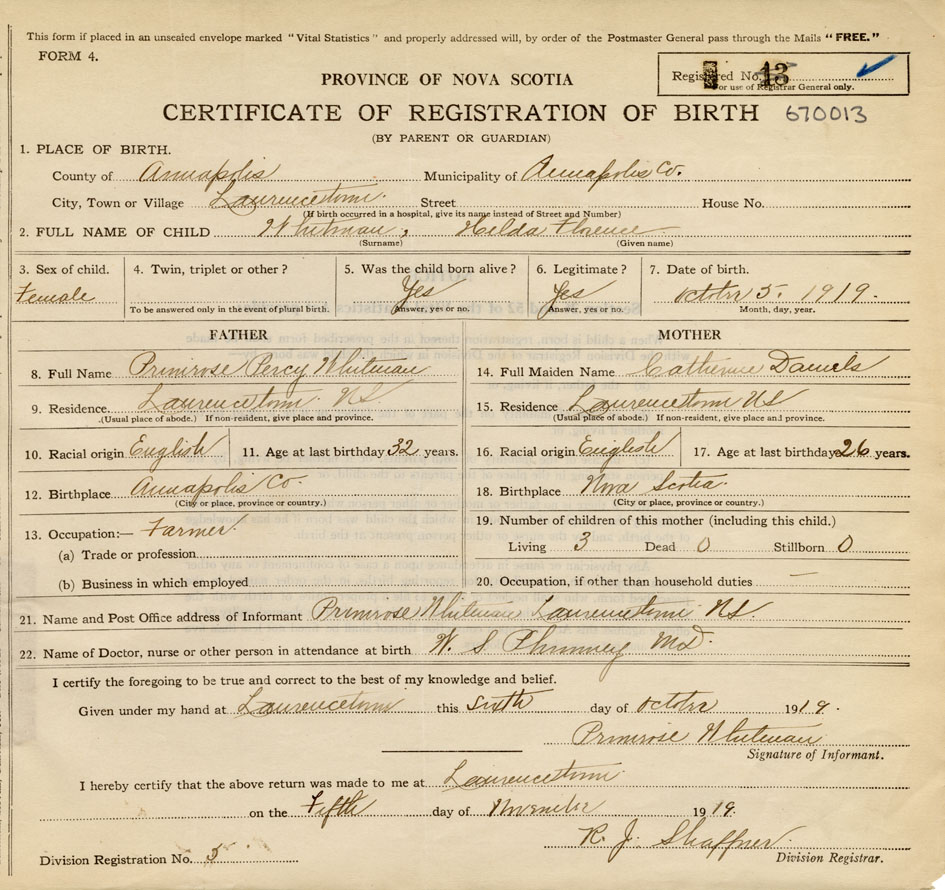 This form if placed in an unsealed envelope marked "Vital Statistics" and properly addressed will, by order of the Postmaster General pass through the Mails "FREE."
FORM 4.
Registered No. 13
For use of Registrar General only.
PROVINCE OF NOVA SCOTIA
CERTIFICATE OF REGISTRATION OF BIRTH 670013
(BY PARENT OR GUARDIAN)
1. PLACE OF BIRTH.
County of Annapolis Municipality of Annapolis Co.
City, Town or Village Laurencetown Street House No.
(If birth occurred in a hospital, give its name instead of Street and Number)
2. FULL NAME OF CHILD Whitman, Hilda Florence
(Surname) (Given name)
3. Sex of child. 4. Twin, triplet or other? 5. Was the child born alive? 6. Legitimate? 7. Date of birth.
Female Yes Yes October 5. 1919.
To be answered only in the event of plural birth. Answer, yes or no. Answer, yes or no. Month, day, year.
FATHER MOTHER
8. Full Name Primrose Percy Whitman 14. Full Maiden Name Catherine Daniels
9. Residence. Laurencetown. NS. 15. Residence Laurencetown NS
(Usual place of abode.) If non-resident, give place and province. (Usual place of abode.) If non-resident, give place and province.
10. Racial origin English 11. Age at last birthday 32 years. 16. Racial origin English 17. Age at last birthday 26 years.
12. Birthplace Annapolis Co. 18. Birthplace Nova Scotia
(City or place, province or country.) (City or place, province or country.)
13. Occupation:— Farmer. 19. Number of children of this mother (including this child.)
(a) Trade or profession Living 3 Dead 0 Stillborn 0
(b) Business in which employed 20. Occupation, if other than household duties —
21. Name and Post Office address of Informant Primrose Whitman Laurencetown NS.
22. Name of Doctor, nurse or other person in attendance at birth W. S Phinney MD.
I certify the foregoing to be true and correct to the best of my knowledge and belief.
Given under my hand at Laurencetown this Sixth day of October 1919.
Primrose Whitman
Signature of Informant.
I hereby certify that the above return was made to me at Laurencetown
on the Fifth day of November 1919.
R. J. Shaffner.
Division Registration No. 5 Division Registrar.